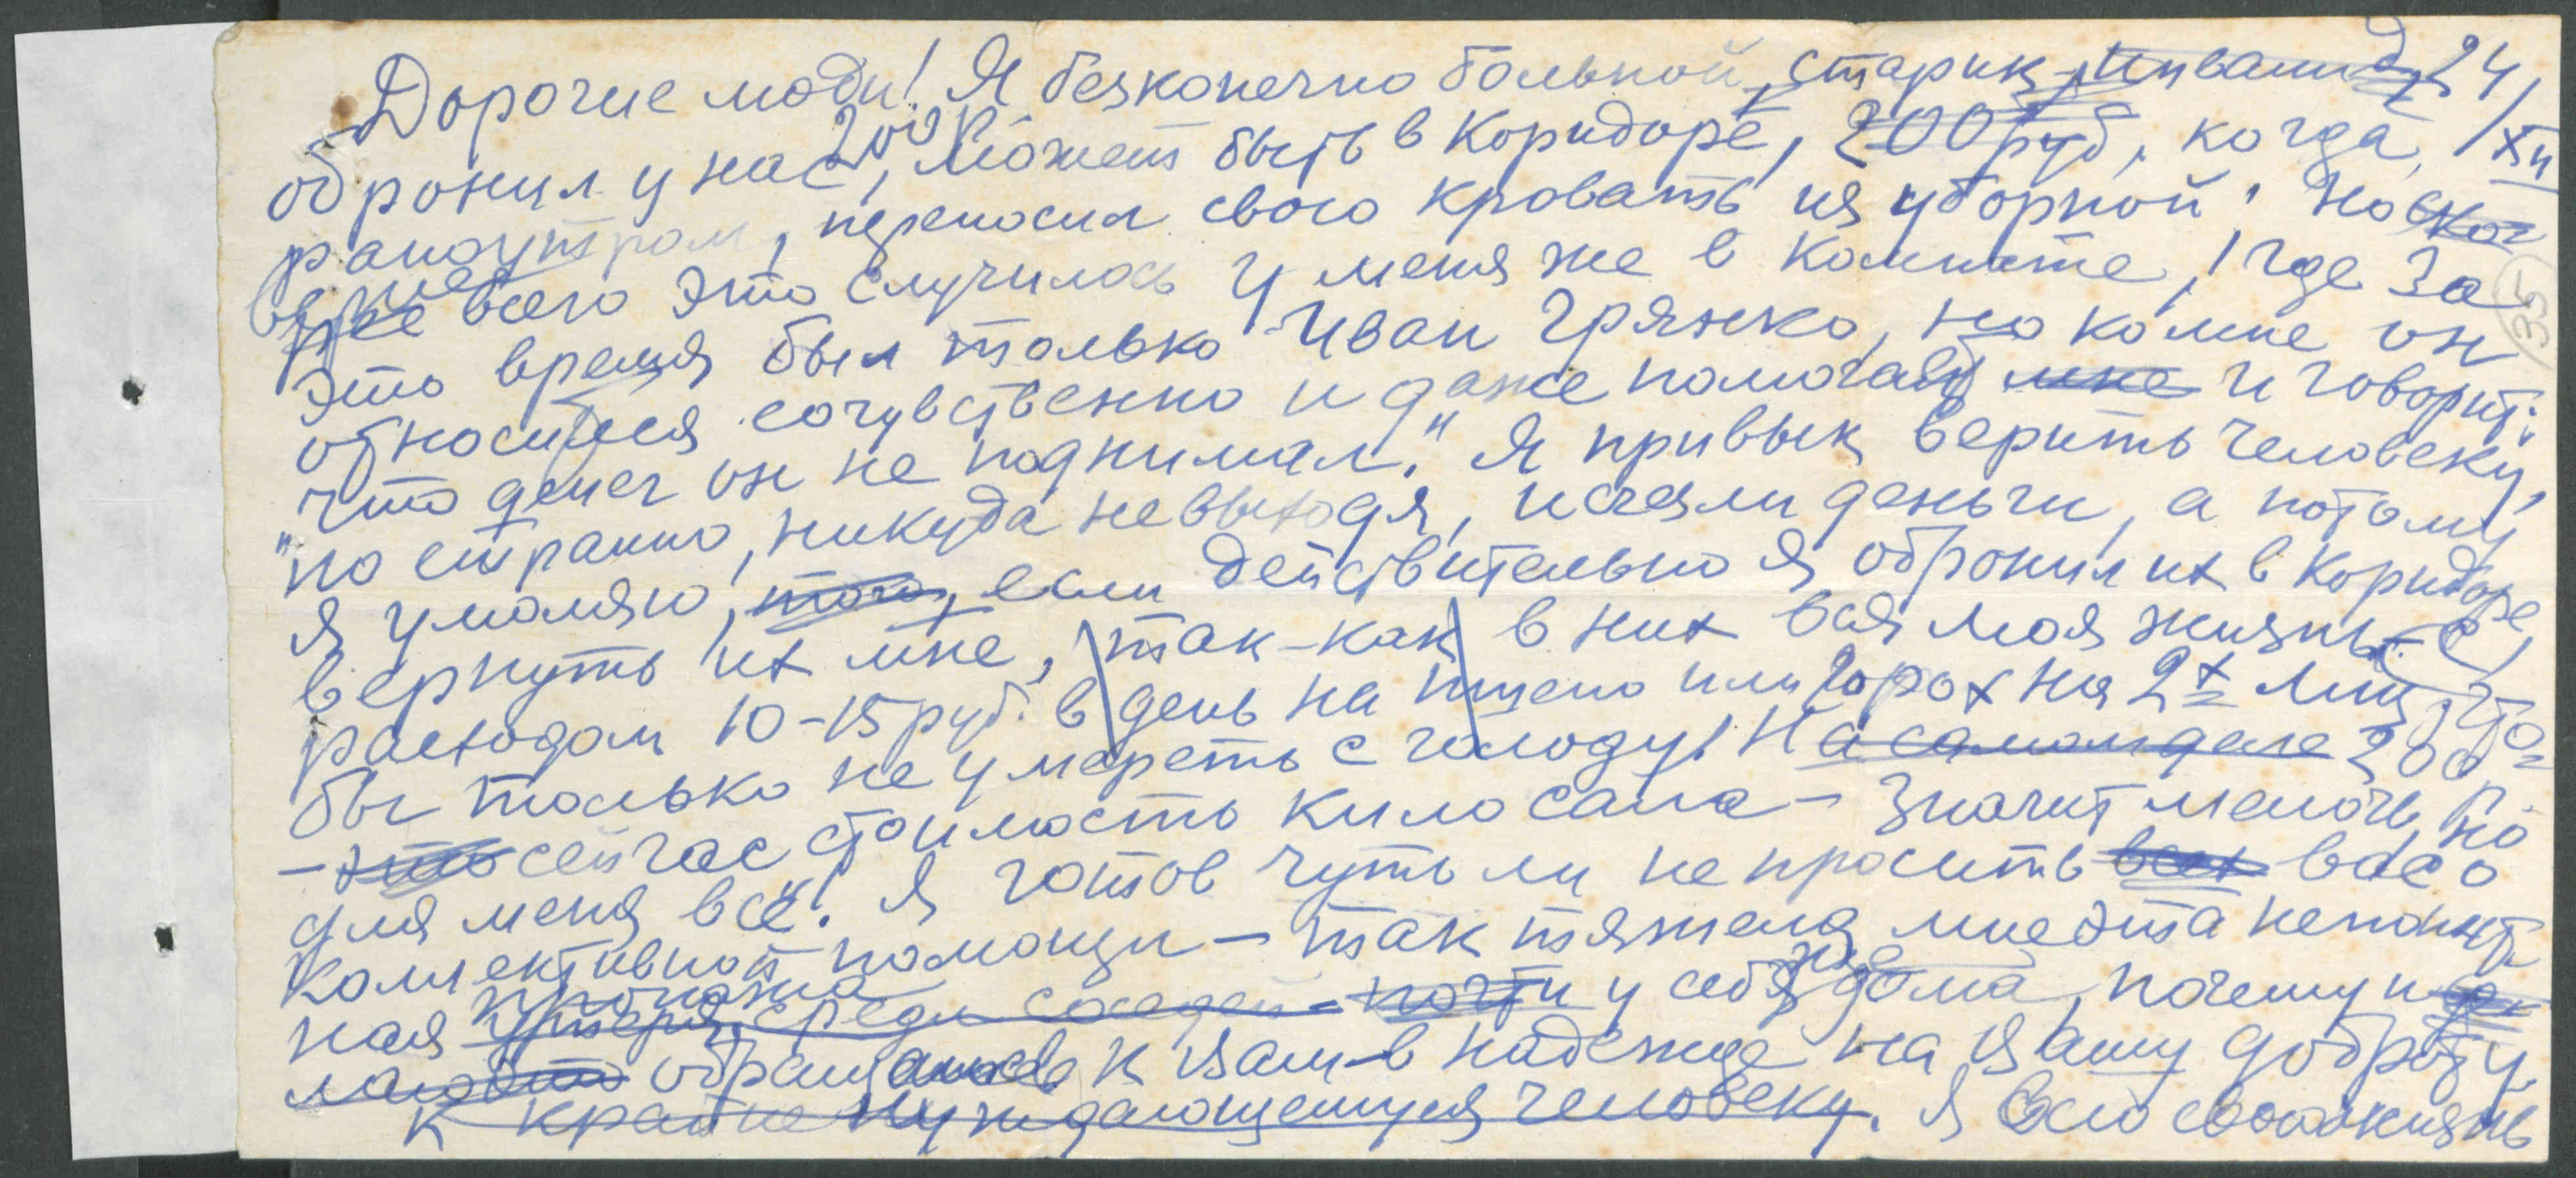 Дорогие люди! Я безконечно больной, старик, инвалид, 24/XII
обронил у нас 200 р., может быть в коридоре, 200 руб., когда,
рано утром, переносил свою кровать из уборной! Но
вернее всего это случилось у меня же в комнате, где за
это время был только Иван Грязнко, но ко мне он
относился сочувственно и даже помогал мне и говорит:
"что денег он не поднимал." Я привык верить человеку,
"но странно, никуда не выходя, исчезли деньги, а потому
я умоляю, того, если действительно я обронил их в коридоре,
вернуть их мне, так-как в них вся моя жизнь с
расходом 10-15 руб. в день на пшено или горох на 2х лиц, что-
бы только не умереть с голоду! На самом деле 200 р.
- это сейчас стоимость кило сала - значит мелочь, но
для меня всё! Я готов чуть ли не просить всех вас о
коллективной помощи - так тяжела мне эта непонят-
ная пропажа утеря, среди соседей - почти у себя же дома, почему и
обращаюсь к Вам в надежде на Вашу доброту
к крайне нуждающемуся человеку. Я всю свою жизнь
35